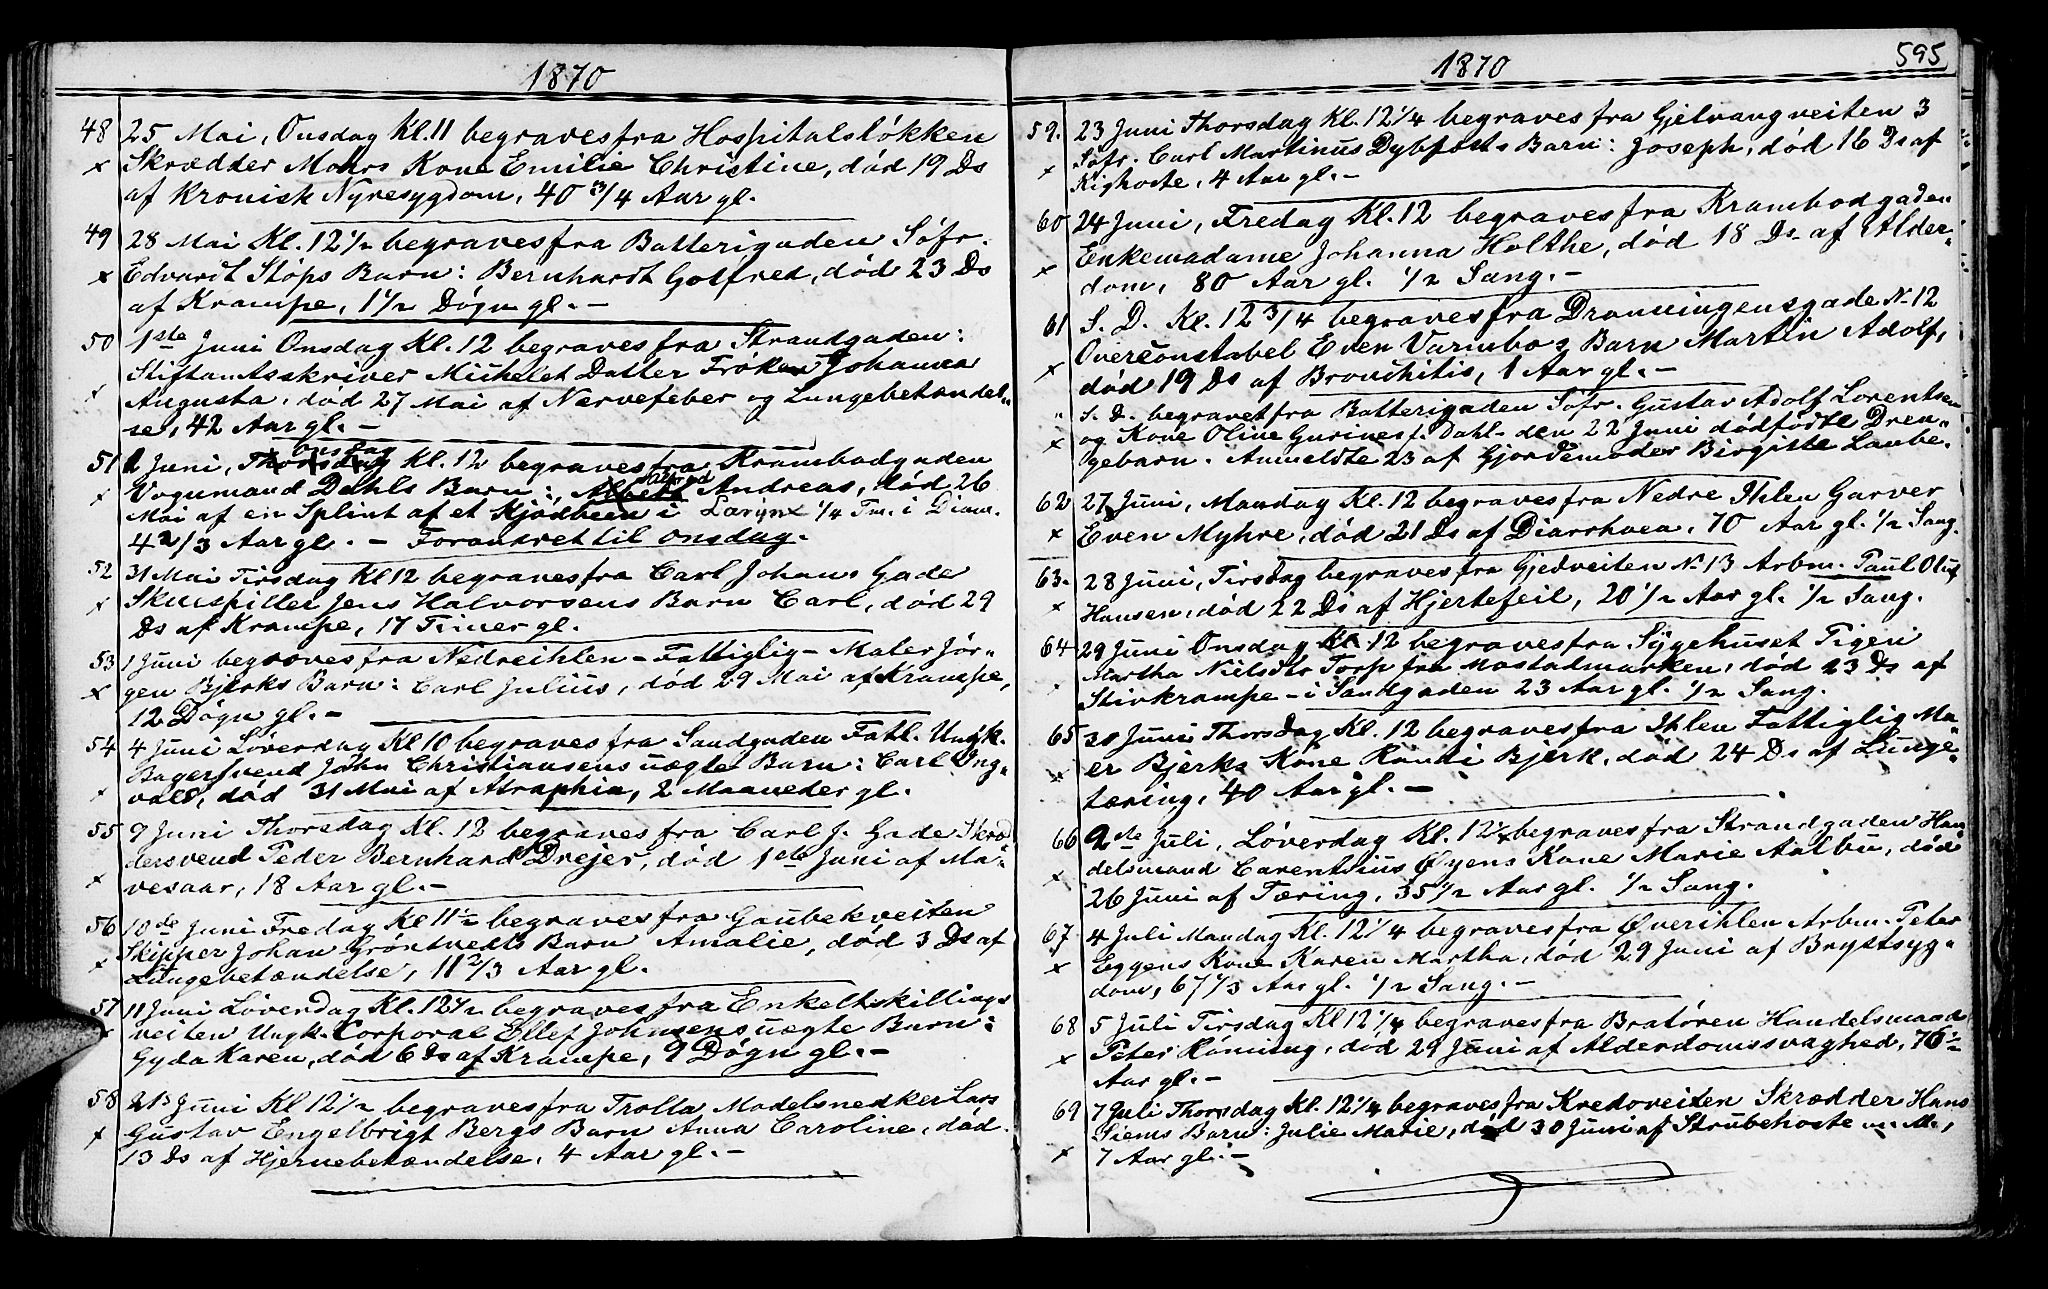 1870
48 25 Mai, Onsdag Kl. 11 begraves fra Hospitalsløkken
Skrædder Mohrs Kone Emilie Christine, død 19 Ds
af Kronisk Nyresygdom, 40 3/4 Aar gl.
49 28 Mai Kl. 12 1/2 begraves fra Batterigaden Söfr.
Edvardt Stöps Barn: Bernhardt Gotfred, död 23 Ds
af Krampe, 1 1/2 Dögn gl. –
50 1ste Juni Onsdag Kl. 12 begraves fra Strandgaden:
Stiftamtsskriver Michelet Datter Fröken Johanna
Augusta, död 27 Mai af Nervefeber og Lungebetændel„
se, 42 Aar gl. –
Onsdag
51 2 Juni, Thorsdag Kl. 12 begraves fra Krambodgaden
Vognmand Dahls Barn:, Albert Alfred Andreas, död 26
Mai af en Splint af et Kjödbeen i Larynx 1/4 Tm. i Diam.
4 2/3 Aar gl. – Forandret til Onsdag.
52 31 Mai Tirsdag Kl 12 begraves fra Carl Johans Gade
Skuespiller Jens Halvorsens Barn Carl, död 29
Ds af Krampe, 17 Timer gl.
53 1 Juni begraves fra Nedreihlen – Fattiglig – Maler Jör„
gen Bjerks Barn: Carl Julius, död 29 Mai af Krampe,
12 Dögn gl. –
54 4 Juni Löverdag Kl 10 begraves fra Sandgaden Fatl. Ungk.
Bagersvend John Christiansens uægte Barn: Carl Ing„
vald, död 31 Mai af Atrophia, 2 Maaneder gl.
55 9 Juni Thorsdag Kl. 12 begraves fra Carl J. Gade Skræd
dersvend Peder Bernhard Drejer, död 1ste Juni af Ma„
vesaar, 18 Aar gl. –
56 10de Juni Fredag Kl 11 1/2 begraves fra Gaubekveiten
Skipper Johan Gröntvedts Barn Amalie, död 3 Ds af
Lungebetændelse, 11 2/3 Aar gl.
57 11 Juni Löverdag Kl. 12 1/2 begraves fra Enkeltskillings
veiten Ungk. Corporal Ellef Johnsens uægte Barn:
Gyda Karen, död 6 Ds af Krampe, 9 Dögn gl. –
58 21s Juni Kl 12 1/2 begraves fra Trolla Modelsnedker Lars
Gustav Engelbrigt Bergs Barn Anna Caroline, död
13 Ds af Hjernebetændelse, 4 Aar gl. –
1870
595
59. 23 Juni Thorsdag Kl. 12 1/4 begraves fra Gjelvangveiten 3
Söfr. Carl Martinus Dybforts Barn: Joseph, död 16 Ds af
Kighoste, 4 Aar gl. –
60 24 Juni, Fredag Kl. 12 begraves fra Krambodgaden
Enkemadame Johanna Holthe, död 18 Ds af Alder„
dom, 80 Aar gl. 1/2 Sang. –
61 S. D. Kl. 12 3/4 begraves fra Dronningensgade N. 12
Overconstabel Even Varmbos Barn Martin Adolf,
död 19 Ds af Bronchitis, 1 Aar gl. –
" S. D. begravet fra Batterigaden Söfr. Gustav Adolf Lorentsen
og Kone Oline Gurine f. Dahl den 22 Juni dödfödte Dren„
gebarn. Anmeldte 23 af Gjordemoder Birgitte Laube.
62 27 Juni, Mandag Kl. 12 begraves fra Nedre Ihlen Garver
Even Myhre, död 21 Ds af Diarrhoea, 70 Aar gl. 1/2 Sang.
63. 28 Juni, Tirsdag begraves fra Gjedveiten N. 13 Arbm. Paul Oluf
Hansen, död 22 Ds af Hjertefeil, 20 1/2 Aar gl. 1/2 Sang.
64 29 Juni Onsdag Kl. 12 begraves fra Sygehuset Pigen
Martha Nielsdtr Torp fra Mostadmarken, död 23 Ds af
Stivkrampe – i Sandgaden 23 Aar gl. 1/2 Sang.
65 30 Juni Thorsdag Kl. 12 begraves fra Ihlen Fattiglig Ma„
er Bjerks Kone Randi Bjerk, död 24 Ds af Lunge„
tæring, 40 Aar gl. –
66 2de Juli, Löverdag Kl. 12 begraves fra Strandgaden Han
delsmand Carentsius Øyens Kone Marie Aalbu, död
26 Juni af Tæring, 35 1/2 Aar gl. 1/2 Sang.
67. 4 Juli Mandag Kl. 12 1/4 begraves fra Øverihlen Arbm. Peter
Eggens Kone Karen Martha, död 29 Juni af Brystsyg„
dom, 67 1/3 Aar gl. 1/2 Sang. –
68 5 Juli Tirsdag Kl 12 1/4 begraves fra Bratören Handelsmand
Peter Rönning, död 29 Juni af Alderdomssvaghed, 76 1/2
Aar gl. –
69 7 Juli Thorsdag Kl. 12 1/4 begraves fra Kredoveiten Skrædder Hans
Siems Barn: Julie Marie, död 30 Juni af Strubehoste m. M.,
7 Aar gl. –